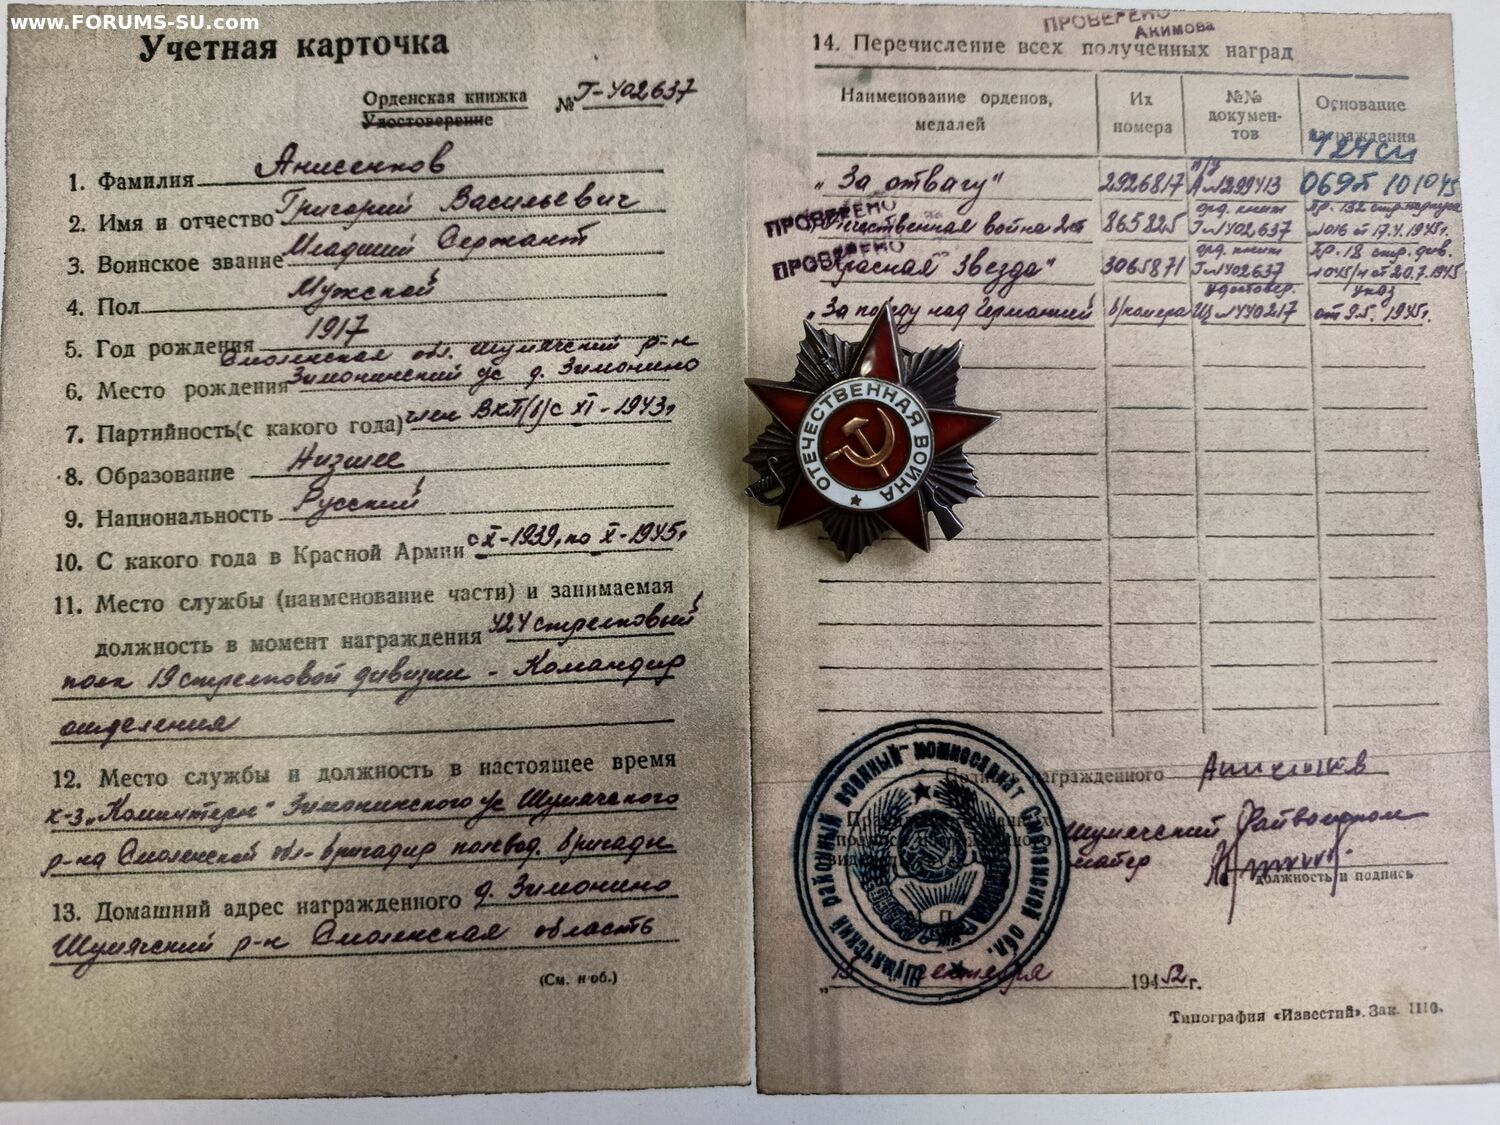 www.FORUMS-SU.com
Учетная карточка
Орденская книжка № Г-402637
Удостоверение
1. Фамилия Анисенков
2. Имя и отчество Григорий Васильевич
3. Воинское звание Младший Сержант
4. Пол Мужской
5. Год рождения 1917
Смоленская обл. Шумячский р-н
6. Место рождения Зимонинский с/с д. Зимонино
7. Партийность(с какого года) член ВКП(б) с XI-1943г
8. Образование Низшее
9. Национальность Русский
10. С какого года в Красной Армии с X-1939г по X-1945г
11. Место службы (наименование части) и занимаемая
должность в момент награждения 424 стрелковый
полк 19 стрелковой дивизии - Командир
отделения
12. Место службы и должность в настоящее время
к-з „Коминтерн" Зимонинского с/с Шумячского
р-на Смоленской обл- бригадир полевод. бригады
13. Домашний адрес награжденного д. Зимонино
Шумячский р-н Смоленская область
(См. н об.)
ПРОВЕРЕНО
АКИМОВА
14. Перечисление всех полученных наград
Наименование орденов, медалей
Их номера
№№ документов
Основание награждения
424 сп
„За отвагу" 2926817 А №299413 069п 10 10 45
ПРОВЕРЕНО
Отечественная война 2 ст 865825 орд. книж Г-№402637 Пр. 132 стр. корпуса №016 от 17.4.1945г.
ПРОВЕРЕНО
„Красная Звезда" 3065871 орд. книж Г-№402637 Пр. 18 стр. див. №045/н от 20.7.1945
„За победу над Германией б/номера удостовер. №440217 указ от 9.5.1945г.
ОТЕЧЕСТВЕННАЯ ВОЙНА
Подпись награжденного
Шумячский Райвоенком
майор
должность и подпись
М. П.
Шумячский районный военный комиссариат Смоленской обл.
1952 г.
Типография «Известий». Зак. 1110.